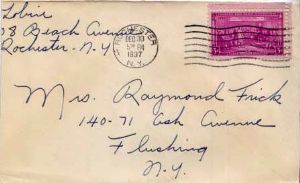 Lobrie
08 Beach Avenue
Rochester - N.Y
ROCHESTER
DEC 30
5 PM
1937
N.Y.
Mrs. Raymond Frick
140-71 Ash Avenue
Flushing
N.Y.